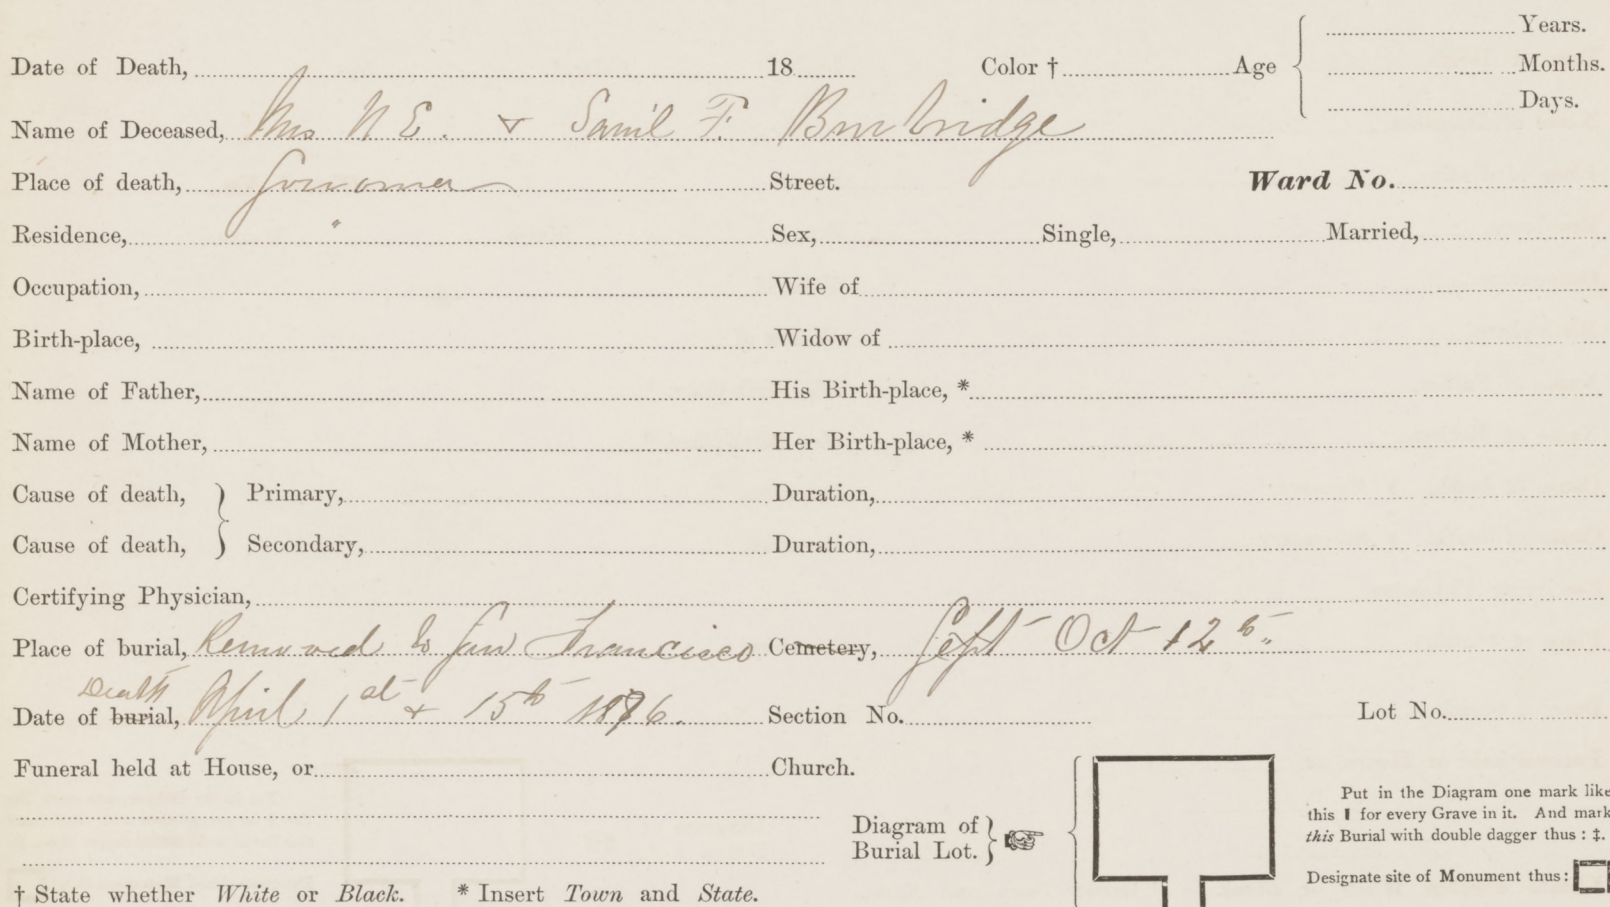 Years.
Date of Death, 18 Color † Age Months.
Days.
Name of Deceased, Mrs N E. & Sam'l F. Burbridge
Place of death, Sonoma Street. Ward No.
Residence, " Sex, Single, Married,
Occupation, Wife of
Birth-place, Widow of
Name of Father, His Birth-place, *
Name of Mother, Her Birth-place, *
Cause of death, Primary, Duration,
Cause of death, Secondary, Duration,
Certifying Physician,
Place of burial, Removed to San Francisco Cemetery, Sept Oct 12th
Death
Date of burial, April 1st & 15th 1876. Section No. Lot No.
Funeral held at House, or Church.
Diagram of
Burial Lot.
Put in the Diagram one mark like
this ❚ for every Grave in it. And mark
this Burial with double dagger thus : ‡.
Designate site of Monument thus:
† State whether White or Black. * Insert Town and State.